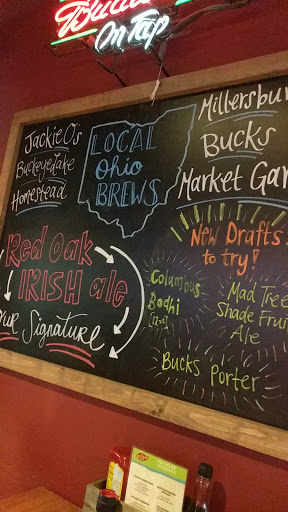 On Tap
Jackie O's
Buckeye Lake
Homestead
LOCAL
Ohio
BREWS
Millersbur
Bucks
Market Gar
Red Oak
IRISH ale
our Signature
New Drafts
to try!
Columbus
Bodhi
[12oz]
Mad Tree
Shade Fruit
Ale
Bucks Porter